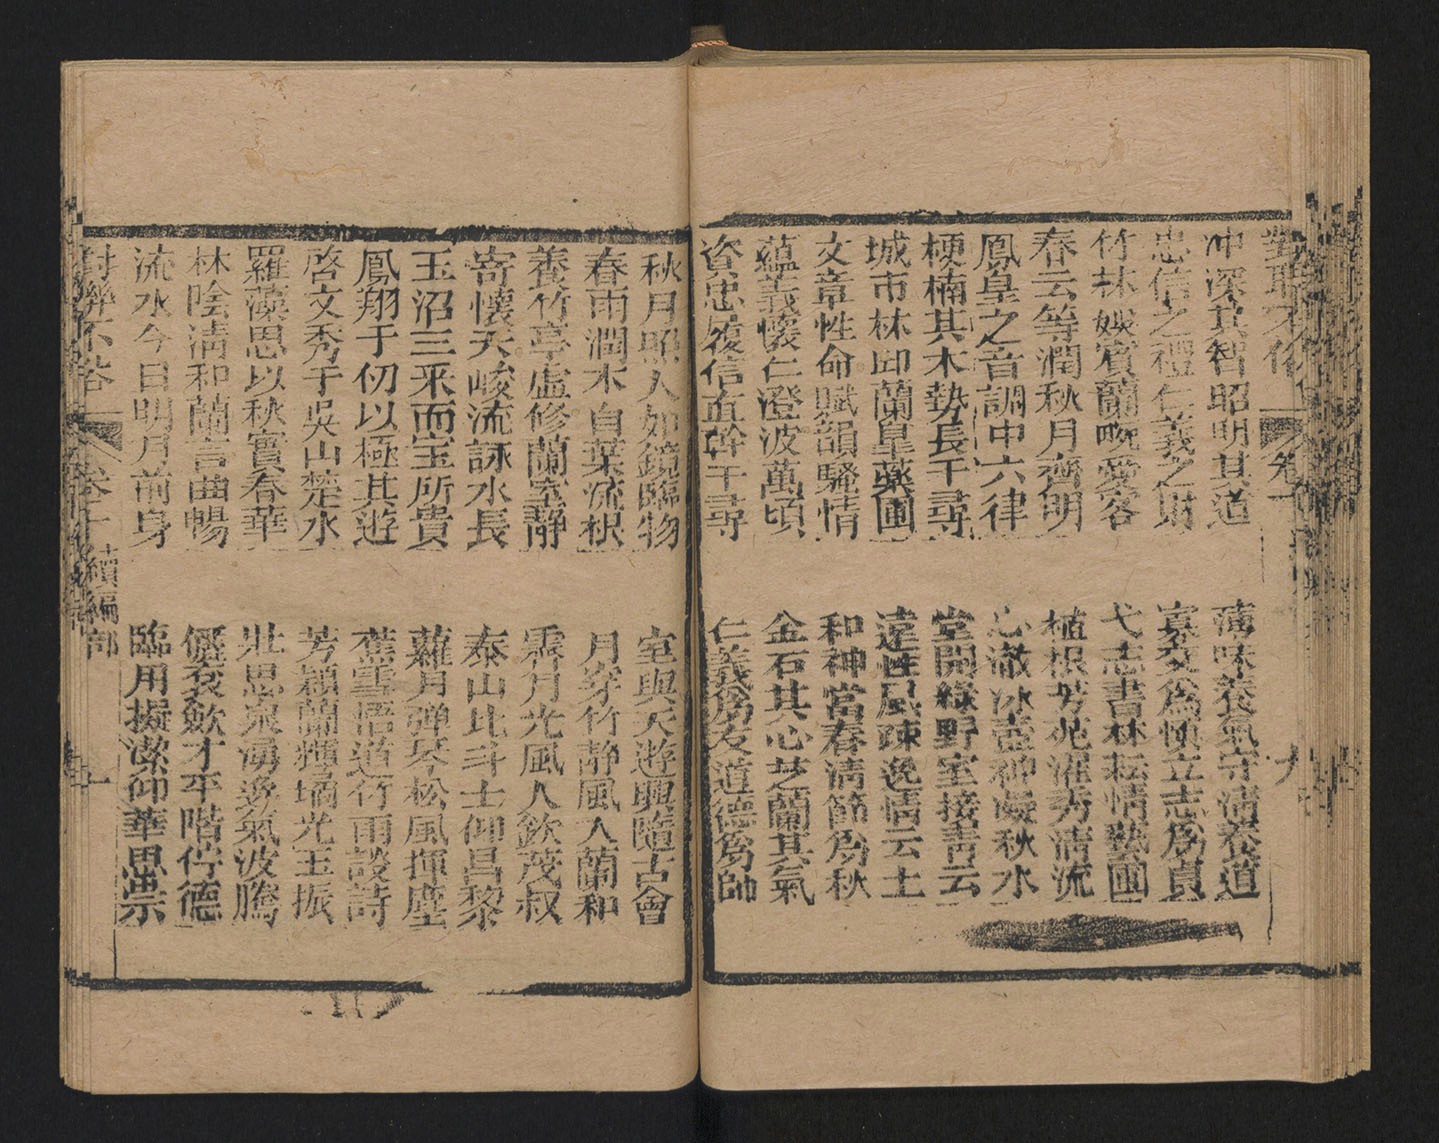 對聯不俗 卷一 九
冲深其智昭明其道
忠信之禮仁義之財
竹林娛賓蘭畹愛客
春云等潤秋月齊明
鳳皇之音調中六律
梗楠其木勢長千尋
城市林邱蘭皐藥圃
文章性命賦韻騷情
蘊義懷仁澄波萬頃
資忠履信直幹千尋
薄味養氣守清養道
寡交爲慎立志爲貞
弋志書林耘情藝圃
植根芳苑濯秀清流
心澈冰壺神凝秋水
堂開綠野室接青云
達性風疎逸情云上
和神當春清節爲秋
金石其心芝蘭其氣
仁義爲友道德爲師
秋月照人如鏡臨物
春雨潤木自葉流根
養竹亭虛修蘭室靜
寄懷天峻流詠水長
玉沼三采而宝所貴
鳳翔千仞以極其遊
啓文秀于吳山楚水
羅藻思以秋實春華
林陰清和蘭言曲暢
流水今日明月前身
室與天遊興隨古會
月穿竹靜風入蘭和
霽月光風人飲茂叔
泰山北斗士仰昌黎
蘿月彈琴松風揮麈
蕉雪悟道竹雨談詩
芳穎蘭輝瑤光玉振
壯思泉湧逸氣波騰
儷袞斂才平階佇德
臨用擬潔仰華思崇
對聯不俗 卷一 續編部 一